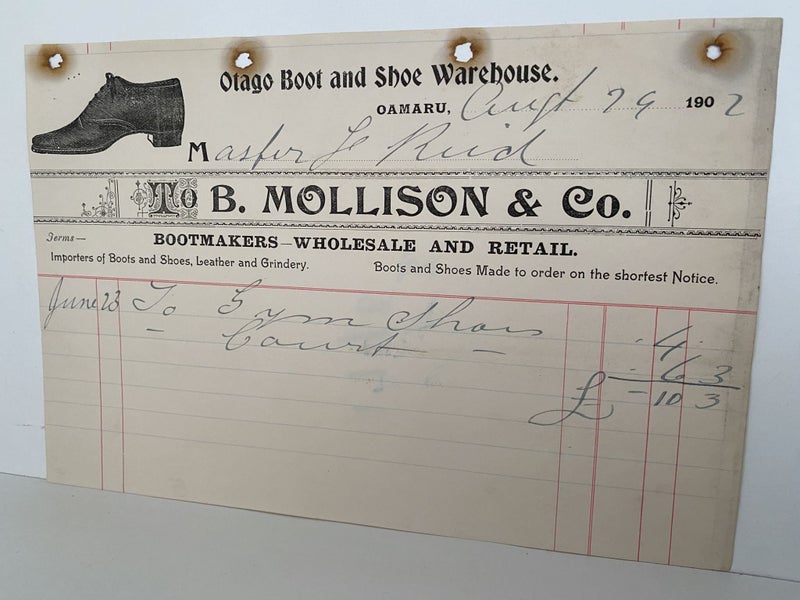 Otago Boot and Shoe Warehouse.
OAMARU, Augt 29 1902
Master J Reid
To B. MOLLISON & Co.
Terms—
BOOTMAKERS—WHOLESALE AND RETAIL.
Importers of Boots and Shoes, Leather and Grindery.
Boots and Shoes Made to order on the shortest Notice.
June 23 To Gym Shoes 4
- Court - 6 3
£ - 10 3